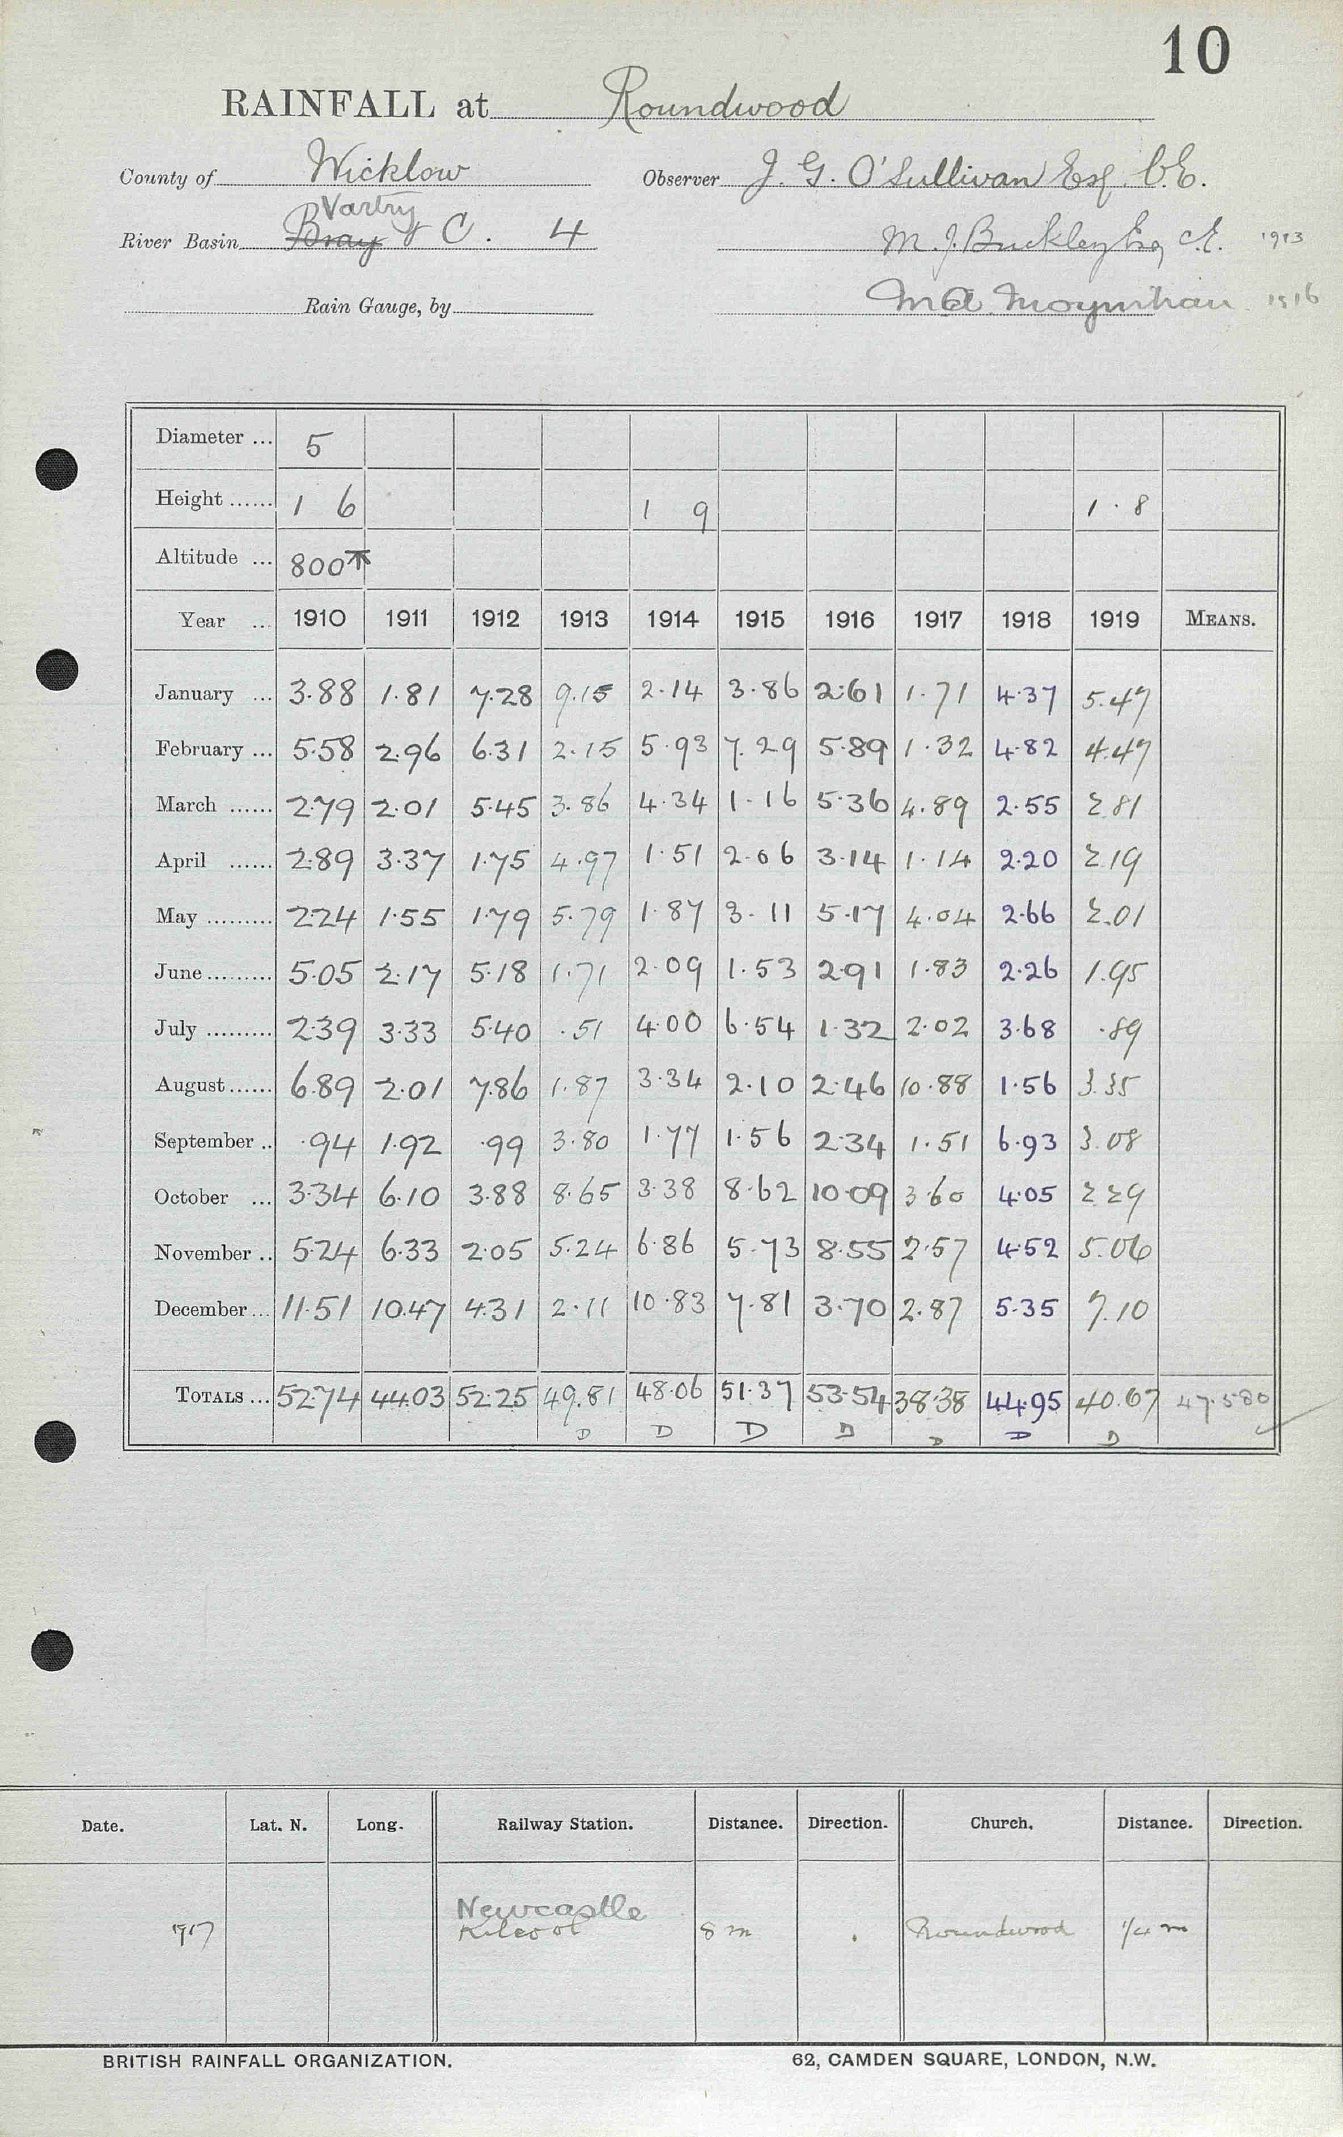 10
RAINFALL at Roundwood
County of Wicklow Observer J. G. O'Sullivan Esq. C.E.
Vartry
River Basin Bray & C. 4 M. J. Buckley Esq C.E. 1913
Rain Gauge, by M A Moynihan 1916
Diameter ... 5
Height ...... 1 6 1 9 1.8
Altitude ... 800
Year ... 1910 1911 1912 1913 1914 1915 1916 1917 1918 1919 MEANS.
January ... 3.88 1.81 7.28 9.15 2.14 3.86 2.61 1.71 4.37 5.47
February ... 5.58 2.96 6.31 2.15 5.93 7.29 5.89 1.32 4.82 4.47
March ...... 2.79 2.01 5.45 3.86 4.34 1.16 5.36 4.89 2.55 2.81
April ...... 2.89 3.37 1.75 4.97 1.51 2.06 3.14 1.14 2.20 2.19
May ......... 2.24 1.55 1.79 5.79 1.87 3.11 5.17 4.04 2.66 2.01
June ......... 5.05 2.17 5.18 1.71 2.09 1.53 2.91 1.83 2.26 1.95
July ......... 2.39 3.33 5.40 .51 4.00 6.54 1.32 2.02 3.68 .89
August ...... 6.89 2.01 7.86 1.87 3.34 2.10 2.46 10.88 1.56 3.35
September .. .94 1.92 .99 3.80 1.77 1.56 2.34 1.51 6.93 3.08
October ... 3.34 6.10 3.88 8.65 3.38 8.62 10.09 3.60 4.05 2.29
November .. 5.24 6.33 2.05 5.24 6.86 5.73 8.55 2.57 4.52 5.06
December ... 11.51 10.47 4.31 2.11 10.83 7.81 3.70 2.87 5.35 7.10
TOTALS ... 52.74 44.03 52.25 49.81 48.06 51.37 53.54 38.38 44.95 40.67 47.580
D D D D D D D
Date. Lat. N. Long. Railway Station. Distance. Direction. Church. Distance. Direction.
Newcastle
1917 Kilcool 8 m Roundwood 1/4 m
BRITISH RAINFALL ORGANIZATION. 62, CAMDEN SQUARE, LONDON, N.W.